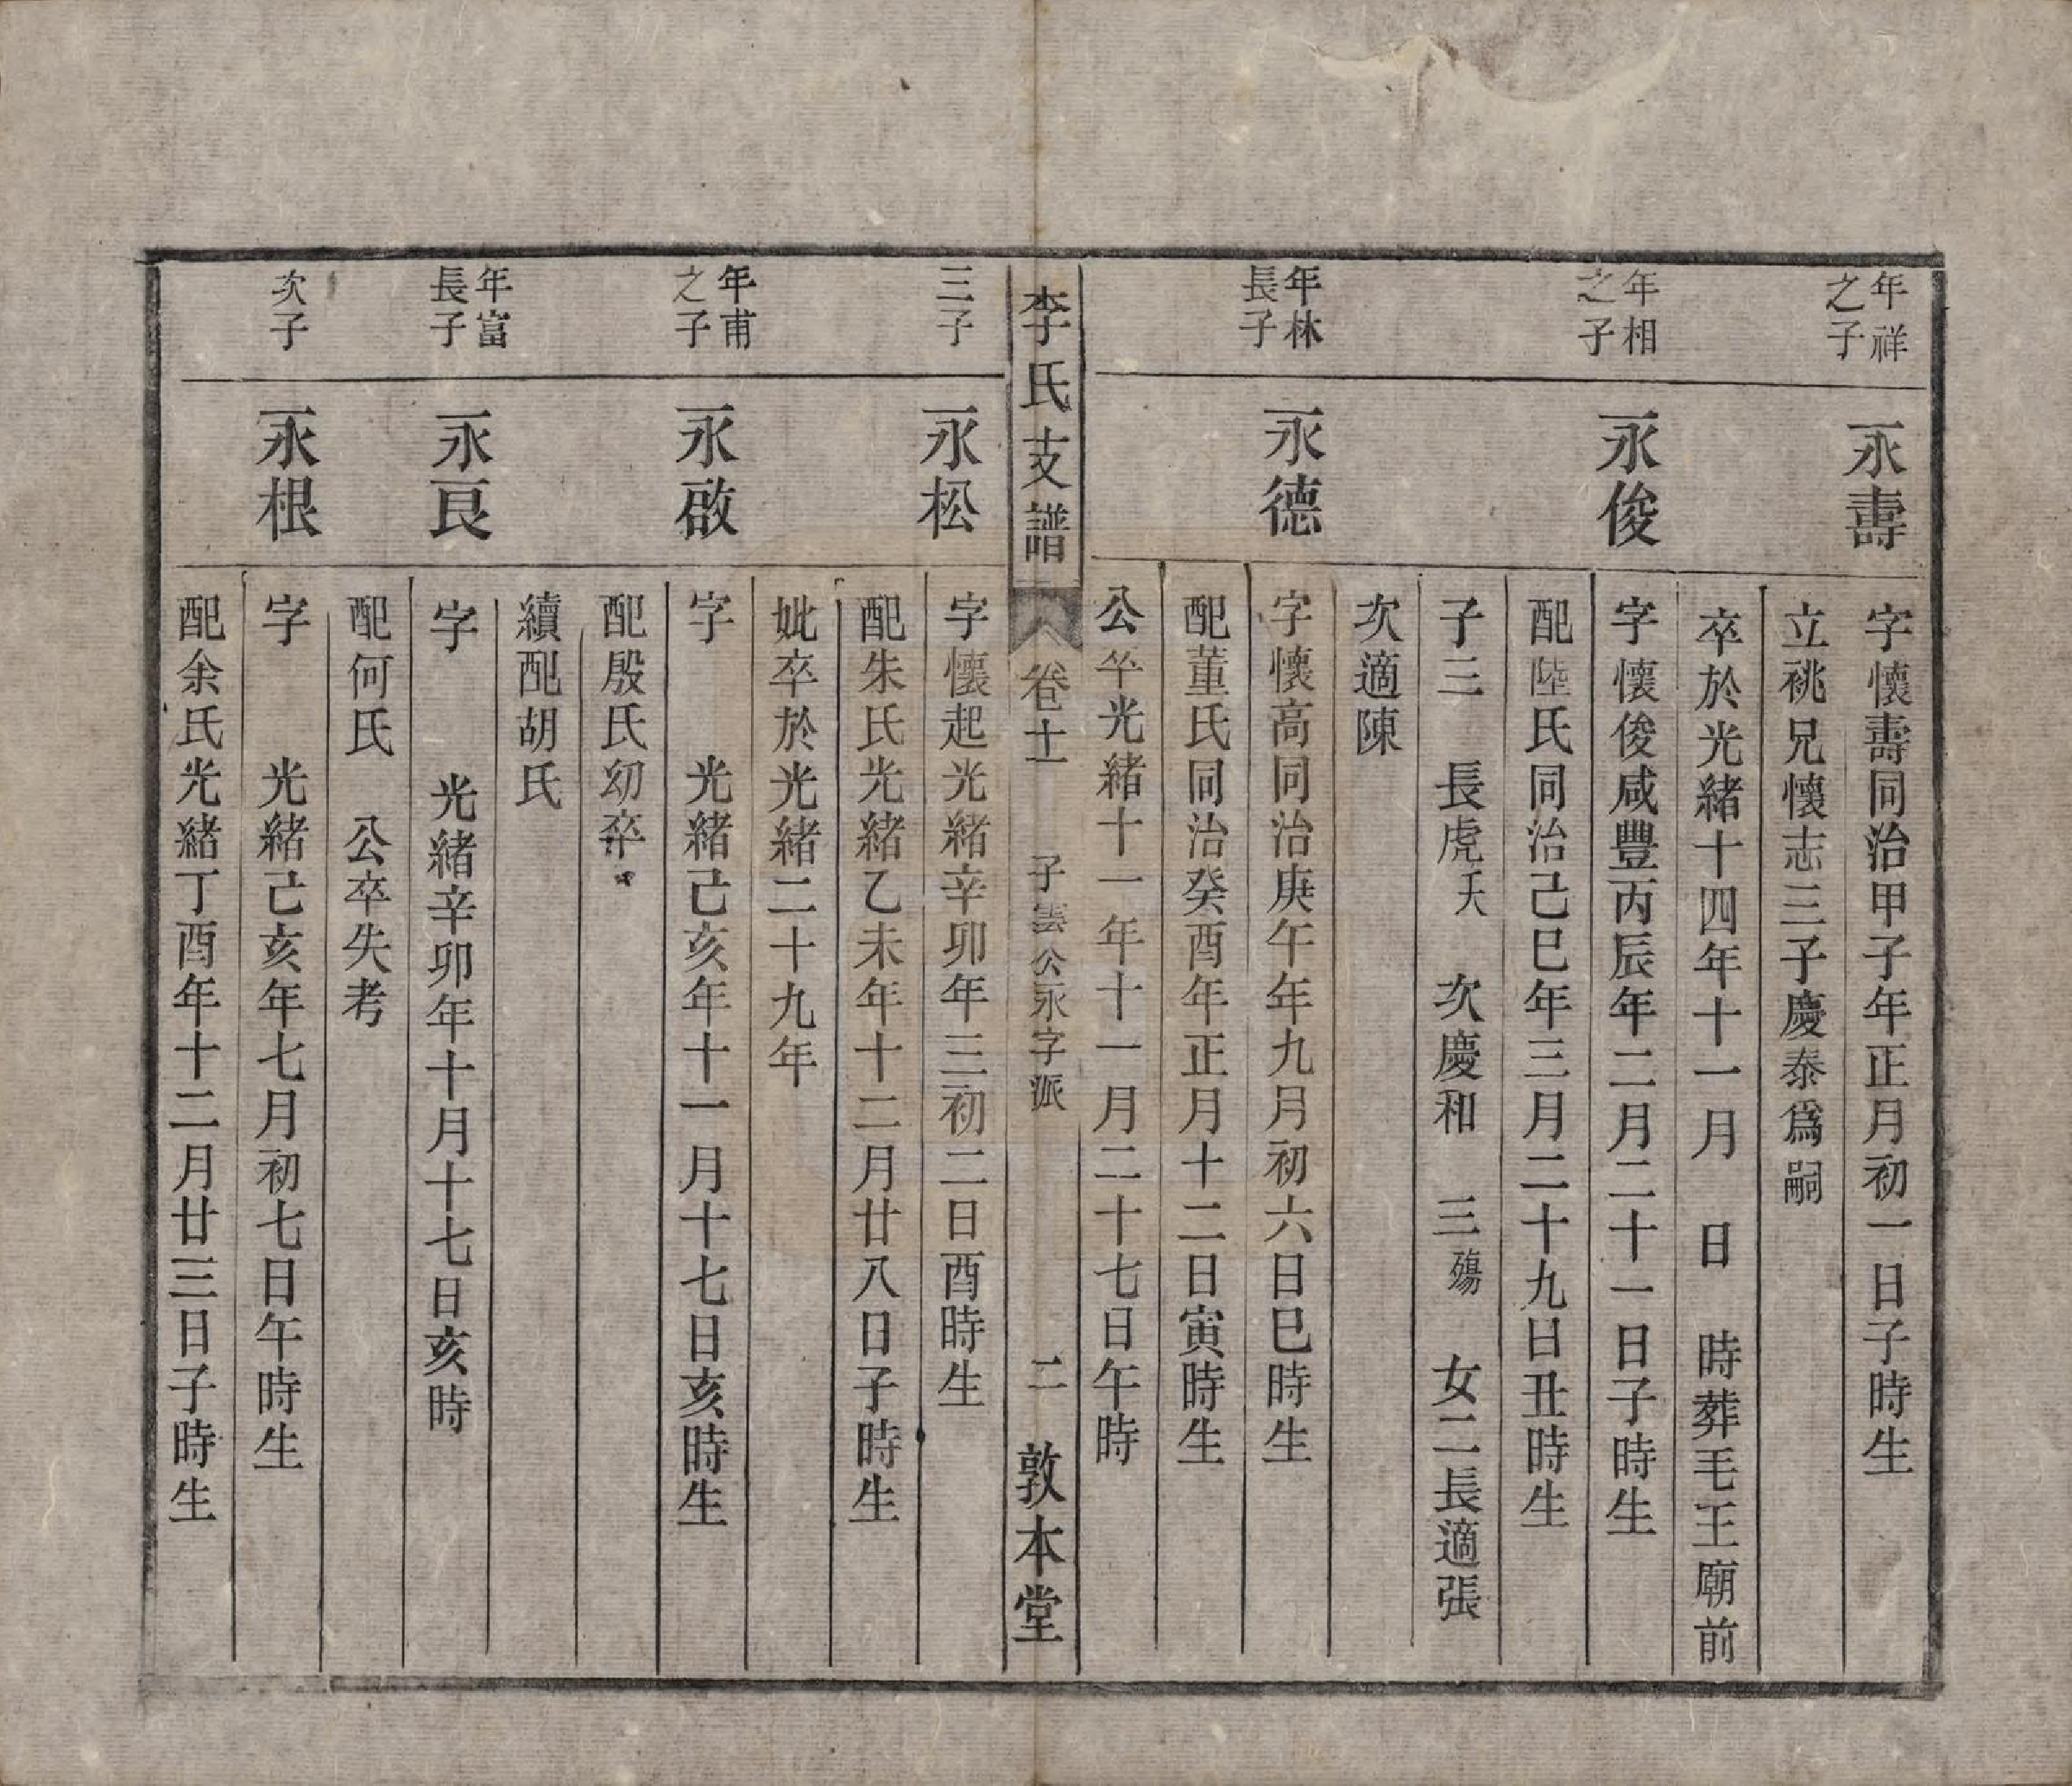 年祥
之子
永壽
字懷壽同治甲子年正月初一日子時生
立祧兄懷志三子慶泰爲嗣
卒於光緒十四年十一月　日　時葬毛王廟前
年相
之子
永俊
字懷俊咸豐丙辰年二月二十一日子時生
配陸氏同治己巳年三月二十九日丑時生
子三　長虎夭　次慶和　三殤　女二長適張
次適陳
年林
長子
永德
字懷高同治庚午年九月初六日巳時生
配董氏同治癸酉年正月十二日寅時生
公卒光緒十一年十一月二十七日午時
李氏支譜
卷十一
子雲公永字派
二
敦本堂
三子
永松
字懷起光緒辛卯年三初二日酉時生
配朱氏光緒乙未年十二月廿八日子時生
妣卒於光緒二十九年
年甫
之子
永啟
字　　光緒己亥年十一月十七日亥時生
配殷氏幼卒
續配胡氏
年富
長子
永良
字　　光緒辛卯年十月十七日亥時
配何氏　公卒失考
次子
永根
字　　光緒己亥年七月初七日午時生
配余氏光緒丁酉年十二月廿三日子時生